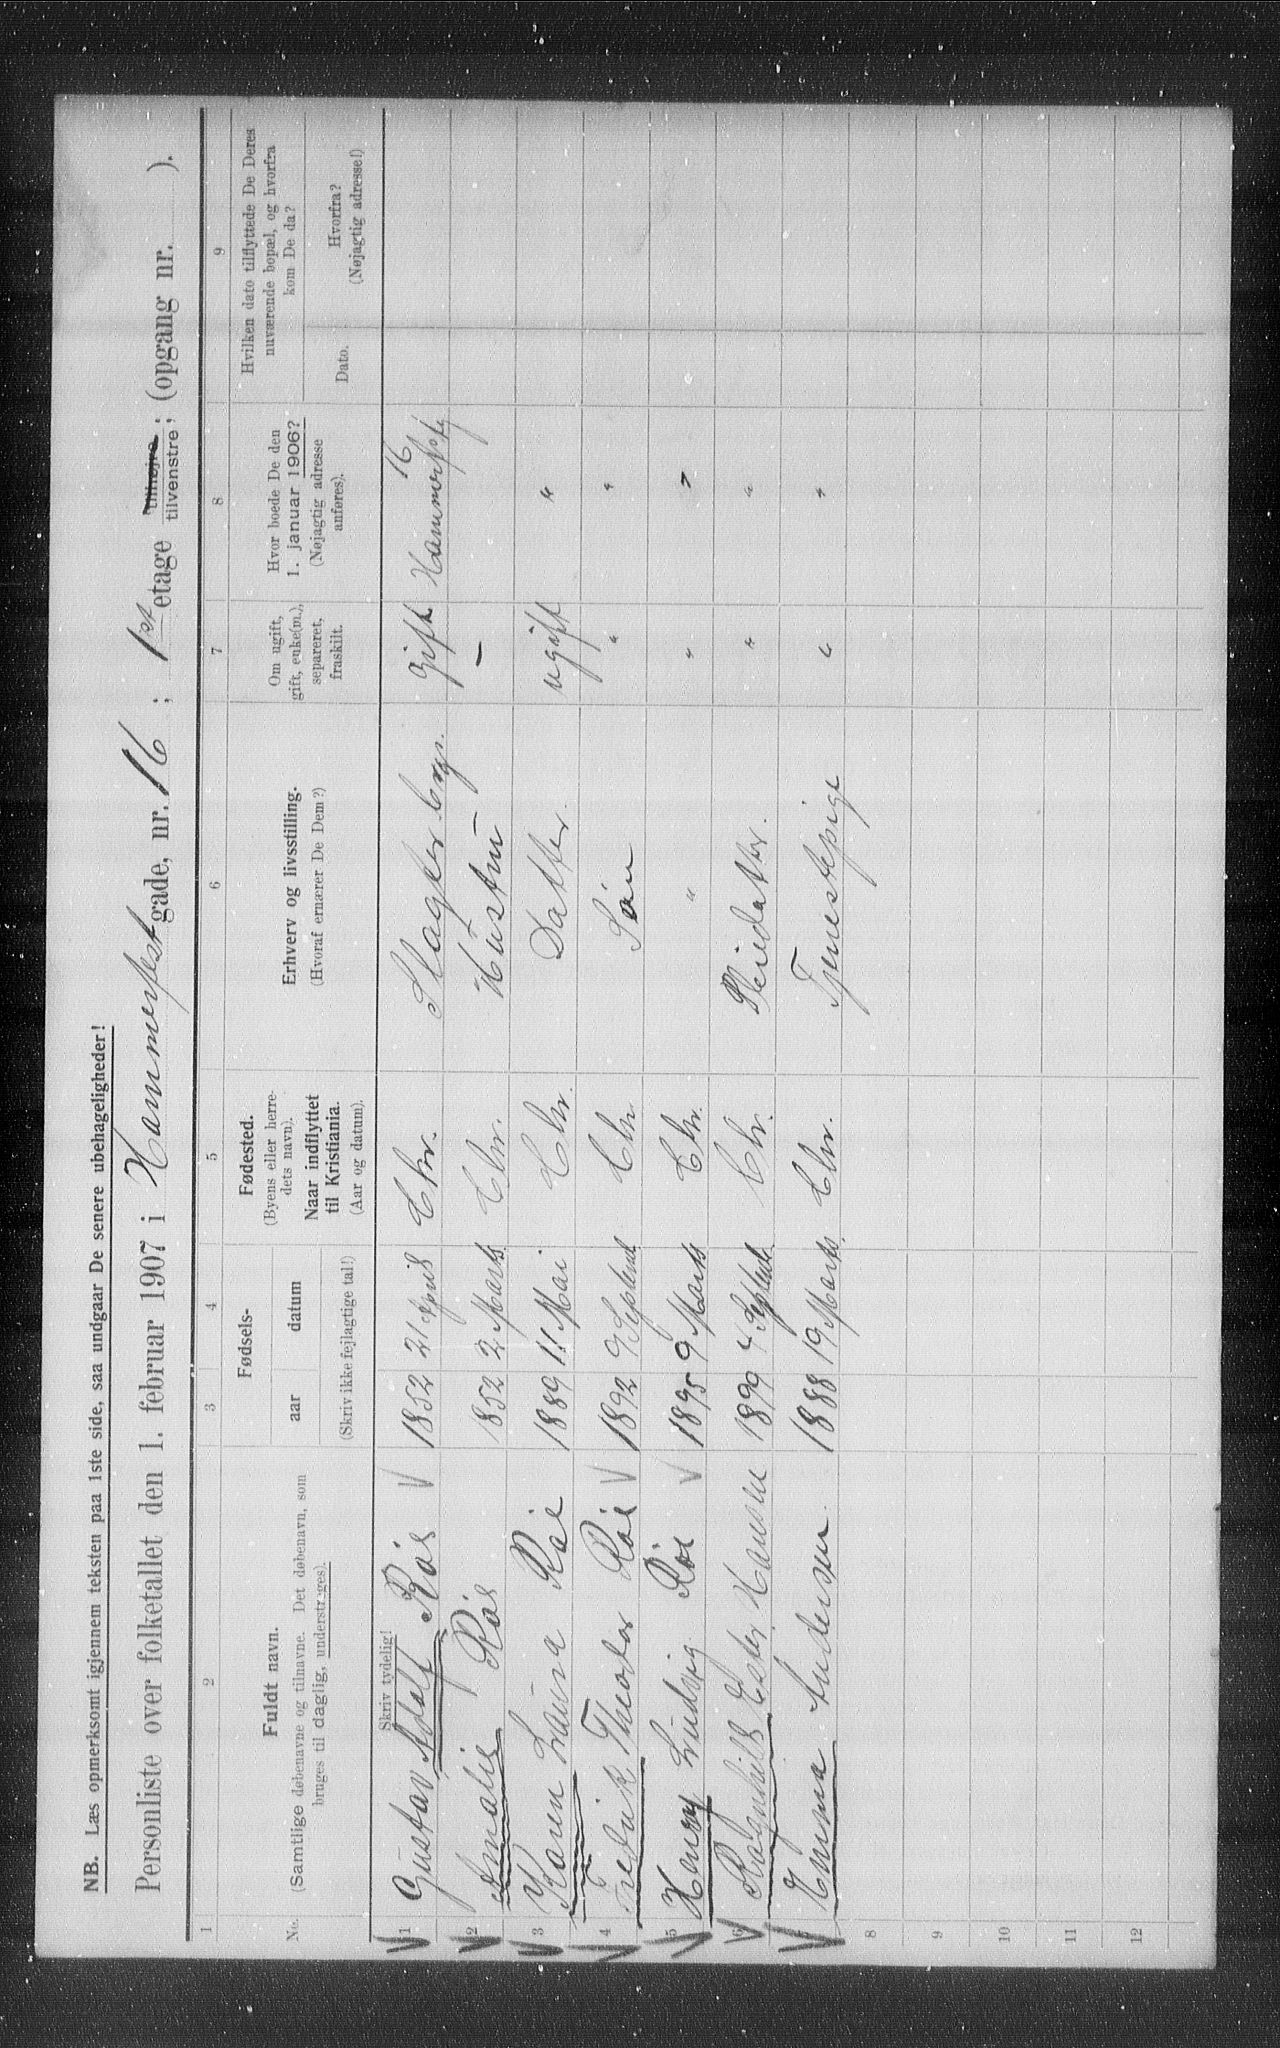 NB. Læs opmerksomt igjennem teksten paa 1ste side, saa undgaar De senere ubehageligheder!
Personliste over folketallet den 1. februar 1907 i Hammerfestgade, nr. 16 ; 1st etage tilhøjre tilvenstre ; (opgang nr. ).
1 2 3 4 5 6 7 8 9
No. Fuldt navn. (Samtlige døbenavne og tilnavne. Det døbenavn, som bruges til daglig, understreges).
Fødsels- aar datum (Skriv ikke fejlagtige tal!)
Fødested. (Byens eller herredets navn). Naar indflyttet til Kristiania. (Aar og datum).
Erhverv og livsstilling. (Hvoraf ernærer De Dem?)
Om ugift, gift, enke(m.), separeret, fraskilt.
Hvor boede De den 1. januar 1906? (Nøjagtig adresse anføres).
Hvilken dato tilflyttede De Deres nuværende bopæl, og hvorfra kom De da?
Dato. Hvorfra? (Nøjagtig adresse!)
Skriv tydelig!
1 Gustav Adolf Røe 1852 21 April Chr. Slagter gift 16
2 Amalie Røe 1852 2 Marts Chr. Hustru —
3 Karen Laura Røe 1889 11 Mai Chr. Datter ugift "
4 Fredrik Theodor Røe 1892 9 Septemb Chr Søn " "
5 Henry Ludvig Røe 1895 9 Marts Chr. " " "
6 Ragnhild Ester Hansen 1899 4 Septemb Chr. Pleiedatter. " "
7 Emma Andersen. 1888 19 Marts. Chr. Tjenestepige " "
8
9
10
11
12